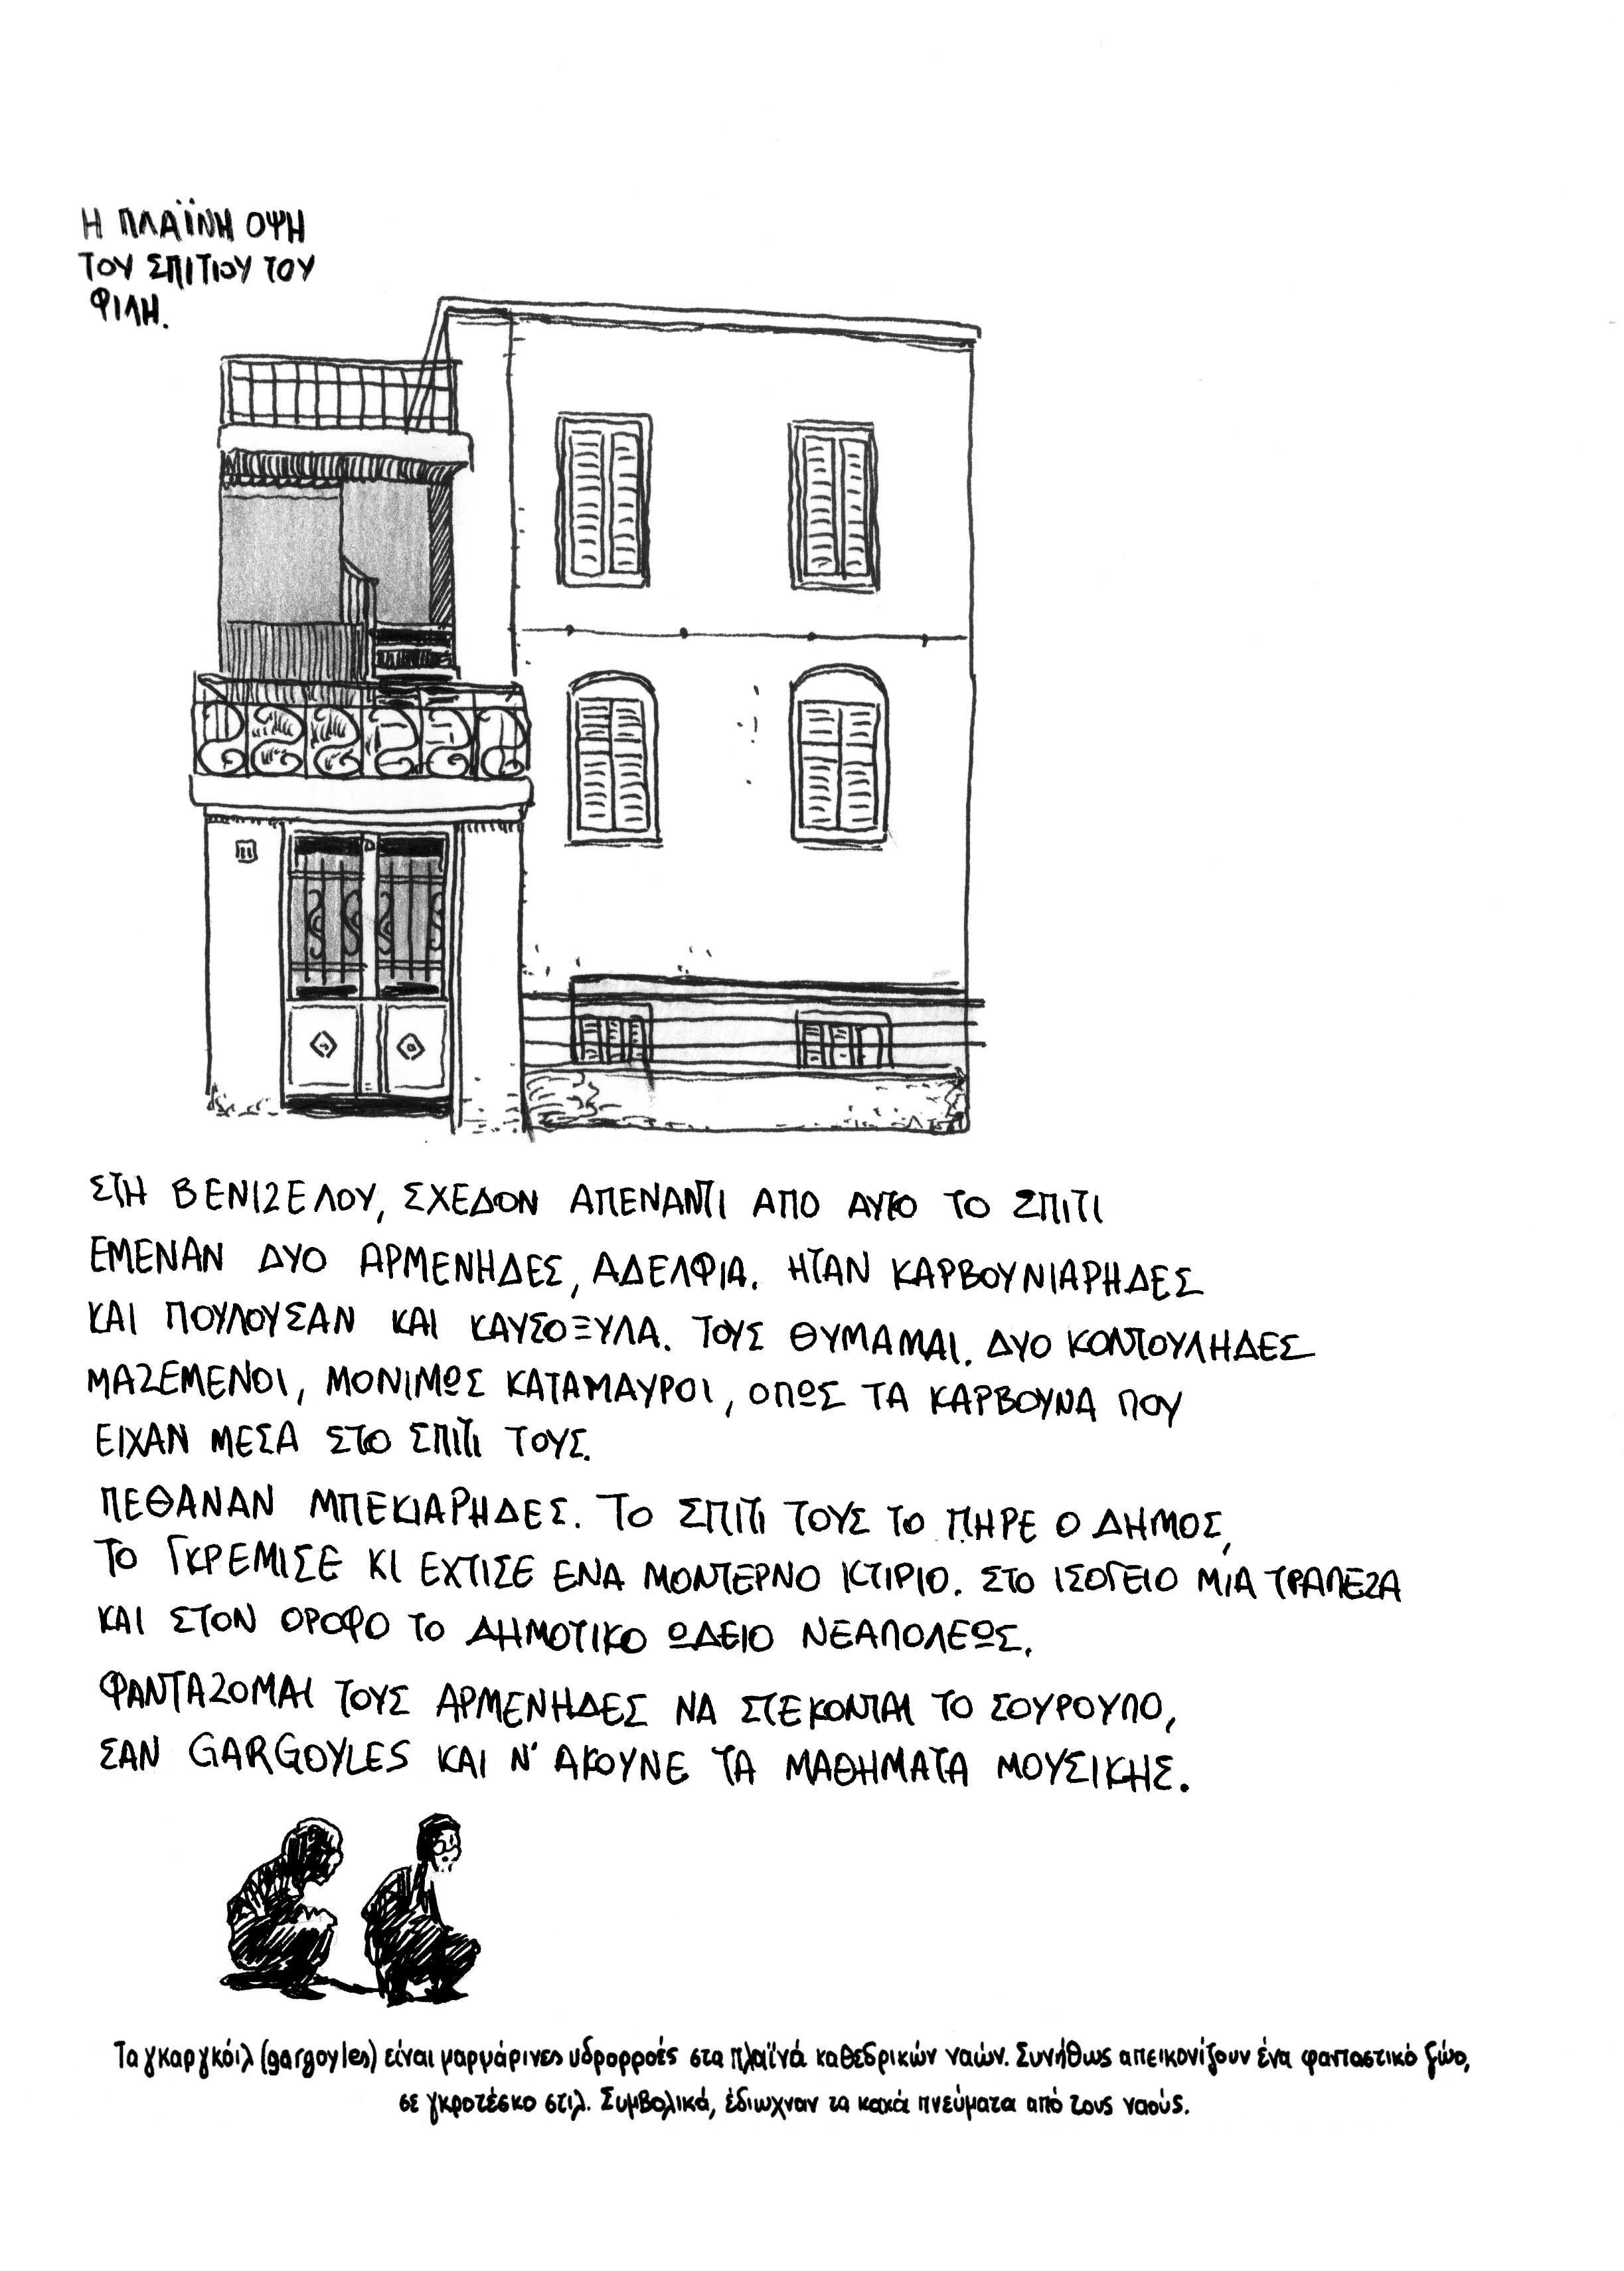 Η ΠΛΑΪΝΗ ΟΨΗ
ΤΟΥ ΣΠΙΤΙΟΥ ΤΟΥ
ΦΙΛΗ.
ΣΤΗ ΒΕΝΙΖΕΛΟΥ, ΣΧΕΔΟΝ ΑΠΕΝΑΝΤΙ ΑΠΟ ΑΥΤΟ ΤΟ ΣΠΙΤΙ
ΕΜΕΝΑΝ ΔΥΟ ΑΡΜΕΝΗΔΕΣ, ΑΔΕΛΦΙΑ. ΗΤΑΝ ΚΑΡΒΟΥΝΙΑΡΗΔΕΣ
ΚΑΙ ΠΟΥΛΟΥΣΑΝ ΚΑΙ ΚΑΥΣΟΞΥΛΑ. ΤΟΥΣ ΘΥΜΑΜΑΙ. ΔΥΟ ΚΟΝΤΟΥΛΗΔΕΣ
ΜΑΖΕΜΕΝΟΙ, ΜΟΝΙΜΩΣ ΚΑΤΑΜΑΥΡΟΙ, ΟΠΩΣ ΤΑ ΚΑΡΒΟΥΝΑ ΠΟΥ
ΕΙΧΑΝ ΜΕΣΑ ΣΤΟ ΣΠΙΤΙ ΤΟΥΣ.
ΠΕΘΑΝΑΝ ΜΠΕΚΙΑΡΗΔΕΣ. ΤΟ ΣΠΙΤΙ ΤΟΥΣ ΤΟ ΠΗΡΕ Ο ΔΗΜΟΣ,
ΤΟ ΓΚΡΕΜΙΣΕ ΚΙ ΕΧΤΙΣΕ ΕΝΑ ΜΟΝΤΕΡΝΟ ΚΤΙΡΙΟ. ΣΤΟ ΙΣΟΓΕΙΟ ΜΙΑ ΤΡΑΠΕΖΑ
ΚΑΙ ΣΤΟΝ ΟΡΟΦΟ ΤΟ ΔΗΜΟΤΙΚΟ ΩΔΕΙΟ ΝΕΑΠΟΛΕΩΣ.
ΦΑΝΤΑΖΟΜΑΙ ΤΟΥΣ ΑΡΜΕΝΗΔΕΣ ΝΑ ΣΤΕΚΟΝΤΑΙ ΤΟ ΣΟΥΡΟΥΠΟ,
ΣΑΝ GARGOYLES ΚΑΙ Ν' ΑΚΟΥΝΕ ΤΑ ΜΑΘΗΜΑΤΑ ΜΟΥΣΙΚΗΣ.
Τα γκαργκόιλ (gargoyles) είναι μαρμάρινες υδρορροές στα πλαϊνά καθεδρικών ναών. Συνήθως απεικονίζουν ένα φανταστικό ζώο,
σε γκροτέσκο στιλ. Συμβολικά, έδιωχναν τα κακά πνεύματα από τους ναούς.